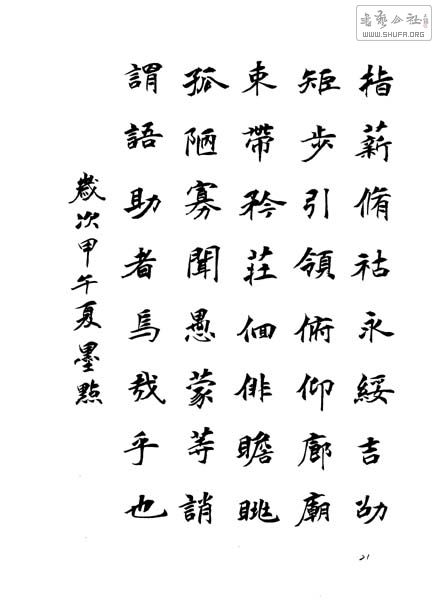 书艺公社
WWW.SHUFA.ORG
指薪脩祜永綏吉劭
矩步引領俯仰廊廟
束帶矜莊佪俳瞻眺
孤陋寡聞愚蒙等誚
謂語助者焉哉乎也
歲次甲午夏墨點
21